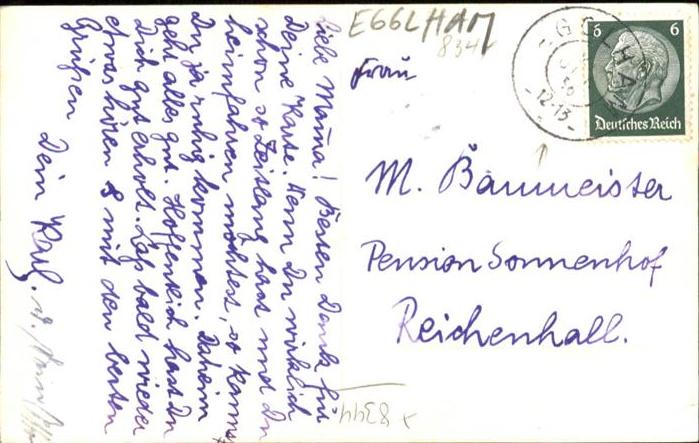 Liebe Mama! Besten Dank für
Deine Karte. Wenn Du wirklich
schon so Zeitlang hast und Du
heimfahren möchtest, so kannst
Du ja ruhig kommen. Daheim
geht alles gut. Hoffentlich hast Du
Dich gut erholt. Lass bald wieder
etwas hören & mit den besten
Grüßen
Dein Karl.
EGGLHAM
834
Frau
M. Baumeister
Pension Sonnenhof
Reichenhall.
6 6
Deutsches Reich
12-13
8344